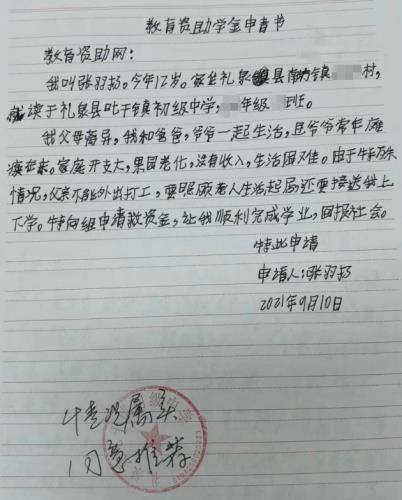 教育资助学金申请书
教育资助网：
我叫张羽扬，今年12岁。家在礼泉县南坊镇村，
就读于礼泉县叱干镇初级中学，年级班。
我父母离异，我和爸爸，爷爷一起生活，且爷爷常年瘫
痪在床。家庭开支大，果园老化，没有收入，生活困难。由于特殊
情况，父亲不能外出打工，要照顾老人生活起居还要接送我上
下学。特向组申请救资金，让我顺利完成学业，回报社会。
特此申请
申请人：张羽扬
2021年9月10日
情况属实
同意推荐